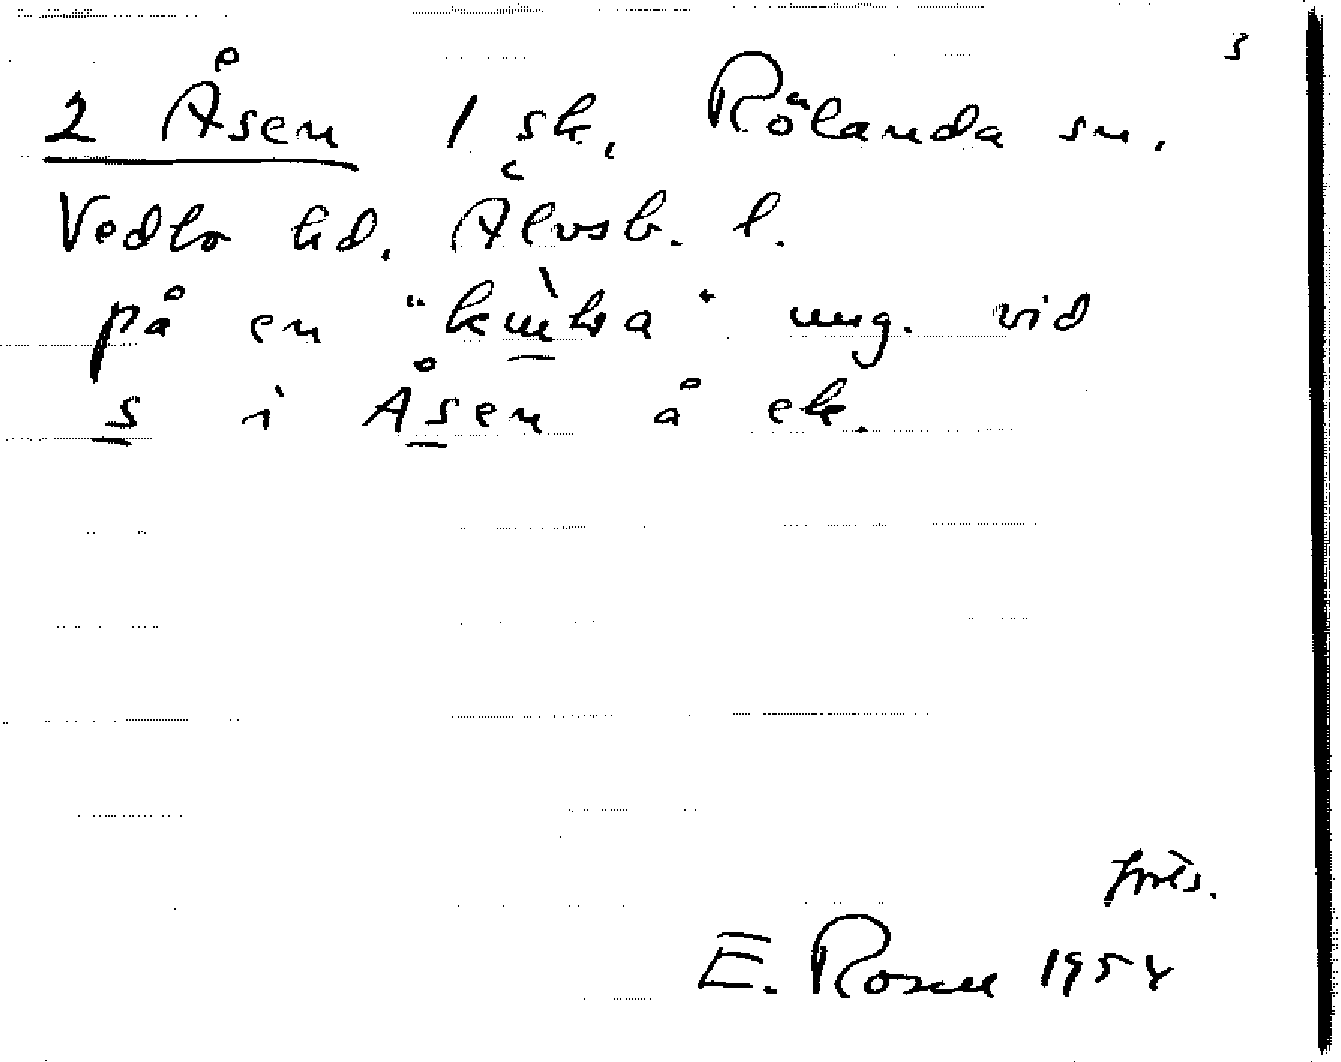 s
2 Åsen 1 sk, Rölanda sn.
Vedbo hd. Älvsb. l.
på en "kulla" ung. vid
s i Åsen å ek.
forts.
E. Rosell 1954